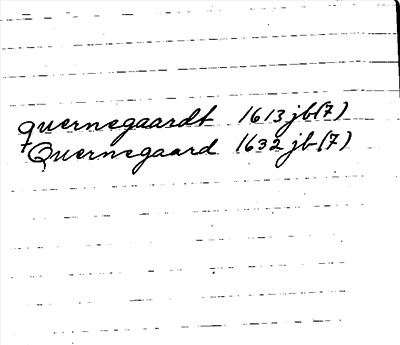 quernegaardt 1613 jb(7)
Quernegaard 1632 jb(7)